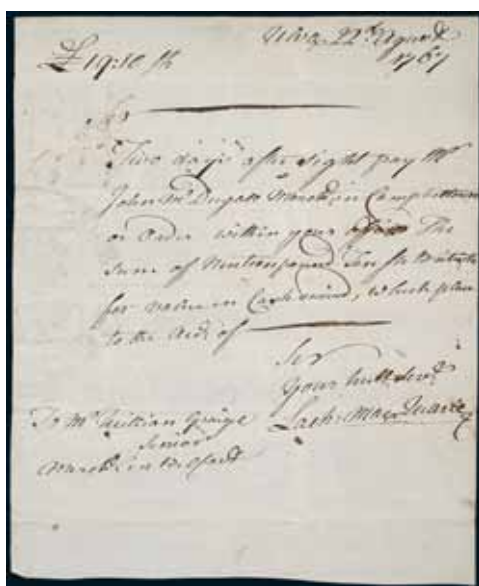 Ulva 22d August
£19:10 sh 1767
Sir
Two days after sight pay Mr
John McDugall Mercht in Campbeltown
or Order within your The
Sum of Nintein pound Ten sh
for value in Cash , which place
to the Acct of
Sir
Your huble Servt
Lach: MacQuarie
To Mr William Graige
Senior
Mercht in Belfast